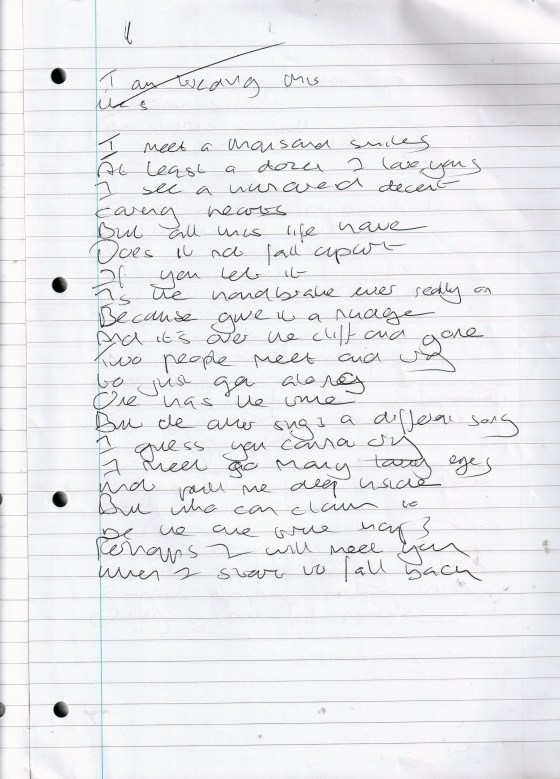 I am
I meet a thousand smiles
At least a dozen I love yous
I see a hundred decent
caring hearts
But all this life have
Does it not fall apart
If you let it
Is the handbrake ever really on
Because give it a nudge
And it's over the cliff and gone
Two people meet and try
to just get along
One has the
But the other sings a different song
I guess you canna cry
I meet so many eyes
That pull me deep inside
But who can claim to
be the one true
Perhaps I will meet you
when I start to fall back